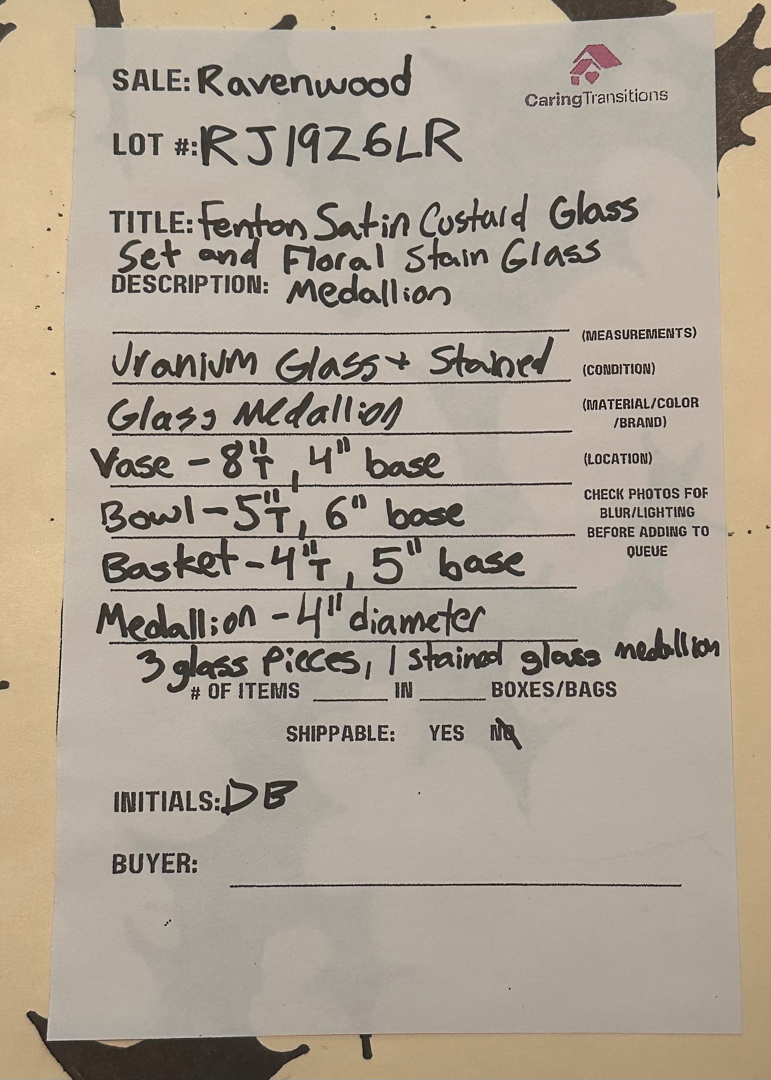 SALE: Ravenwood
CaringTransitions
LOT #: RJ1926LR
TITLE: Fenton Satin Custard Glass
Set and Floral Stain Glass
DESCRIPTION: Medallion
(MEASUREMENTS)
Uranium Glass + Stained
(CONDITION)
Glass Medallion
(MATERIAL/COLOR
/BRAND)
Vase - 8"T, 4" base
(LOCATION)
Bowl - 5"T, 6" base
CHECK PHOTOS FOR
BLUR/LIGHTING
BEFORE ADDING TO
QUEUE
Basket - 4"T, 5" base
Medallion - 4" diameter
3 glass pieces, 1 stained glass medallion
# OF ITEMS ______ IN ______ BOXES/BAGS
SHIPPABLE: YES NO
INITIALS: DB
BUYER: